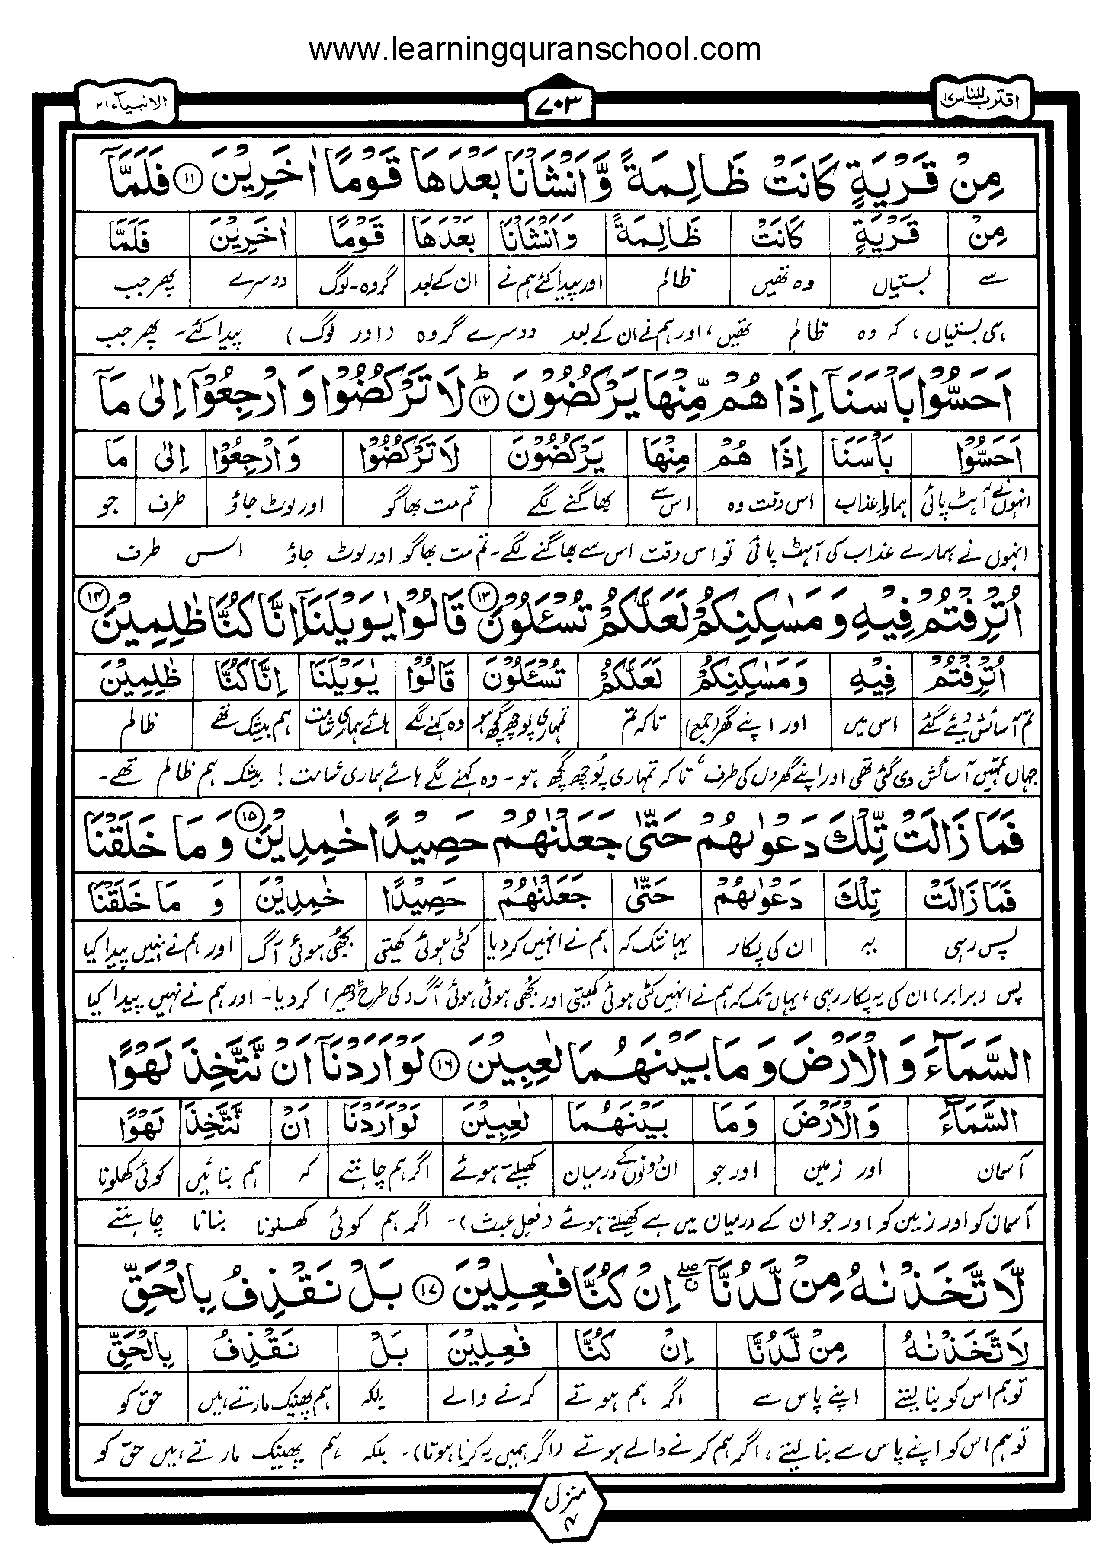 www.learningquranschool.com
اقترب للناس ۱۷
۷۰۳
الانبیاء ۲۱
مِنْ قَرْيَةٍ كَانَتْ ظَالِمَةً وَّاَنْشَاْنَا بَعْدَهَا قَوْمًا اٰخَرِيْنَ ۱۱ فَلَمَّاۤ
مِنْ قَرْيَةٍ كَانَتْ ظَالِمَةً وَاَنْشَاْنَا بَعْدَهَا قَوْمًا اٰخَرِيْنَ فَلَمَّا
سے بستیاں وہ تھیں ظالم اور پیدا کئے ہم نے ان کے بعد گروہ۔لوگ دوسرے پھر جب
ہی بستیاں، کہ وہ ظالم تھیں، اور ہم نے ان کے بعد دوسرے گروہ (اور لوگ) پیدا کئے۔ پھر جب
اَحَسُّوْا بَاْسَنَاۤ اِذَا هُمْ مِّنْهَا يَرْكُضُوْنَ ۱۲ؕ لَا تَرْكُضُوْا وَ ارْجِعُوْۤا اِلٰى مَاۤ
اَحَسُّوْا بَاْسَنَا اِذَا هُمْ مِنْهَا يَرْكُضُوْنَ لَا تَرْكُضُوْا وَ ارْجِعُوْا اِلٰى مَا
انہوں نے آہٹ پائی ہمارا عذاب اس وقت وہ اس سے بھاگنے لگے تم مت بھاگو اور لوٹ جاؤ طرف جو
انہوں نے ہمارے عذاب کی آہٹ پائی تو اس وقت اس سے بھاگنے لگے۔ تم مت بھاگو اور لوٹ جاؤ اسی طرف
اُتْرِفْتُمْ فِيْهِ وَ مَسٰكِنِكُمْ لَعَلَّكُمْ تُسْـَٔلُوْنَ ۱۳ قَالُوْا يٰوَيْلَنَاۤ اِنَّا كُنَّا ظٰلِمِيْنَ ۱۴
اُتْرِفْتُمْ فِيْهِ وَمَسٰكِنِكُمْ لَعَلَّكُمْ تُسْـَٔلُوْنَ قَالُوْا يٰوَيْلَنَا اِنَّا كُنَّا ظٰلِمِيْنَ
تم آسائش دیئے گئے اس میں اور اپنے گھر (جمع) تاکہ تم تمہاری پوچھ گچھ ہو وہ کہنے لگے ہائے ہماری شامت ہم بیشک تھے ظالم
جہاں تمہیں آسائش دی گئی تھی اور اپنے گھروں کی طرف، تاکہ تمہاری پوچھ گچھ ہو۔ وہ کہنے لگے ہائے ہماری شامت! بیشک ہم ظالم تھے۔
فَمَا زَالَتْ تِّلْكَ دَعْوٰىهُمْ حَتّٰى جَعَلْنٰهُمْ حَصِيْدًا خٰمِدِيْنَ ۱۵ وَ مَا خَلَقْنَا
فَمَا زَالَتْ تِلْكَ دَعْوٰىهُمْ حَتّٰى جَعَلْنٰهُمْ حَصِيْدًا خٰمِدِيْنَ وَ مَا خَلَقْنَا
پس رہی یہ ان کی پکار یہانتک کہ ہم نے انہیں کر دیا کٹی ہوئی کھیتی بجھی ہوئی آگ اور ہم نے نہیں پیدا کیا
پس (برابر) ان کی یہ پکار رہی، یہاں تک کہ ہم نے انہیں کٹی ہوئی کھیتی اور بجھی ہوئی ہوئی آگ (کی طرح ڈھیر) کر دیا۔ اور ہم نے نہیں پیدا کیا
السَّمَآءَ وَ الْاَرْضَ وَ مَا بَيْنَهُمَا لٰعِبِيْنَ ۱۶ لَوْ اَرَدْنَاۤ اَنْ نَّتَّخِذَ لَهْوًا
السَّمَآءَ وَالْاَرْضَ وَمَا بَيْنَهُمَا لٰعِبِيْنَ لَوْ اَرَدْنَا اَنْ نَّتَّخِذَ لَهْوًا
آسمان اور زمین اور جو ان دونوں کے درمیان کھیلتے ہوئے اگر ہم چاہتے کہ ہم بنائیں کوئی کھلونا
آسمان کو اور زمین کو اور جو ان کے درمیان میں ہے کھیلتے ہوئے (فعل عبث)۔ اگر ہم کوئی کھلونا بنانا چاہتے
لَّا تَّخَذْنٰهُ مِنْ لَّدُنَّاۤ ۖ اِنْ كُنَّا فٰعِلِيْنَ ۱۷ بَلْ نَقْذِفُ بِالْحَقِّ
لَا تَّخَذْنٰهُ مِنْ لَّدُنَّا اِنْ كُنَّا فٰعِلِيْنَ بَلْ نَقْذِفُ بِالْحَقِّ
تو ہم اس کو بنا لیتے اپنے پاس سے اگر ہم ہوتے کرنے والے بلکہ ہم پھینک مارتے ہیں حق کو
تو ہم اس کو اپنے پاس سے بنا لیتے، اگر ہم کرنے والے ہوتے (اگر ہمیں یہ کرنا ہوتا)۔ بلکہ ہم پھینک مارتے ہیں حق کو
منزل ۴